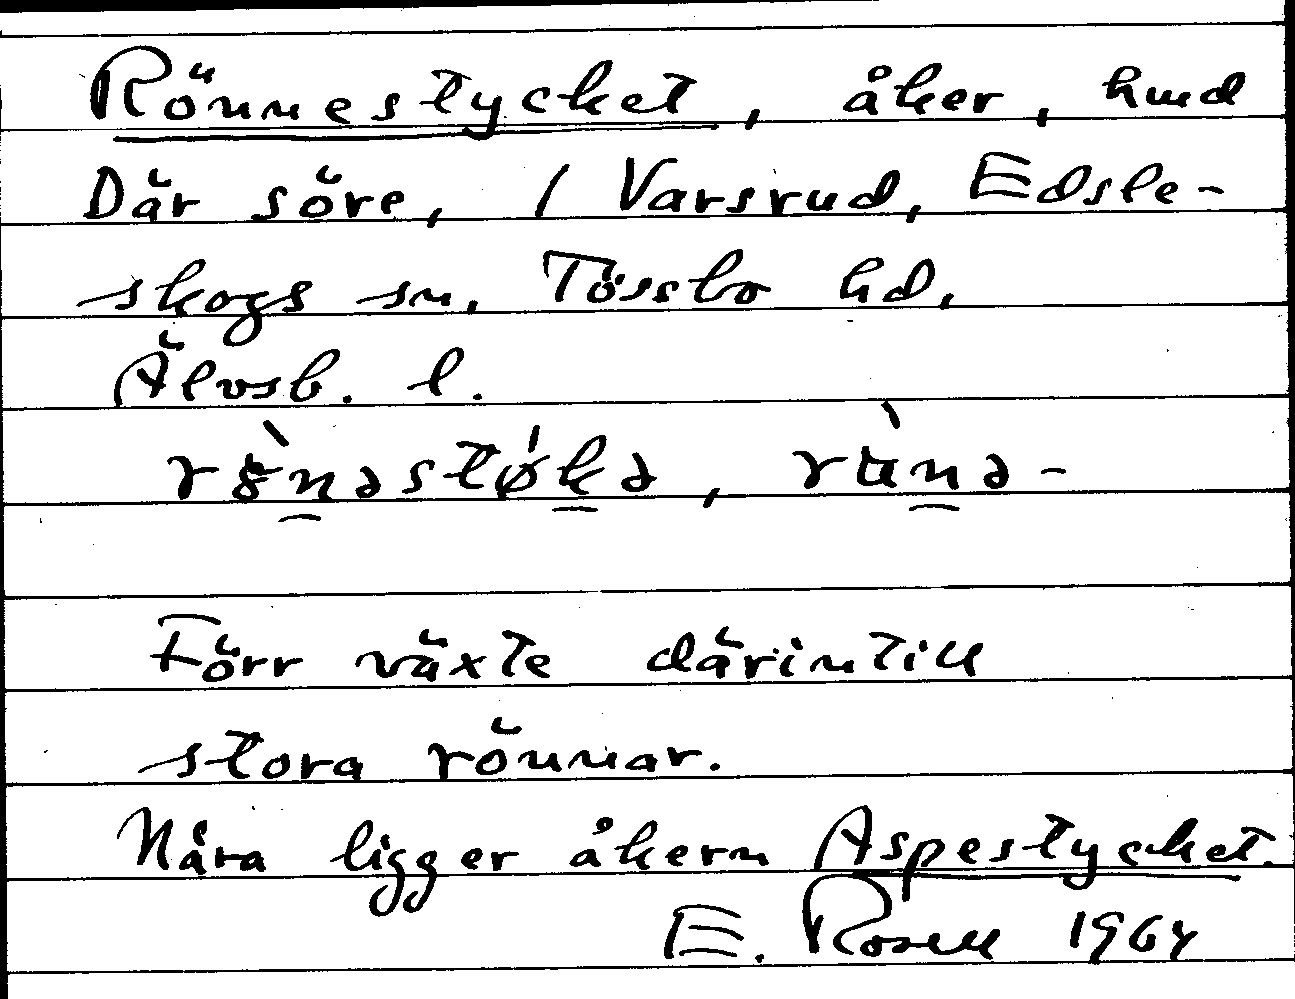 Rönnestycket, åker, hmd
Där söre, / Varsrud, Edsle-
skogs sn, Tössbo hd,
Älvsb. l.
stora rönnar.
Förr växte därintill
Nära ligger åkern Aspestycket.
E. Rosell 1964